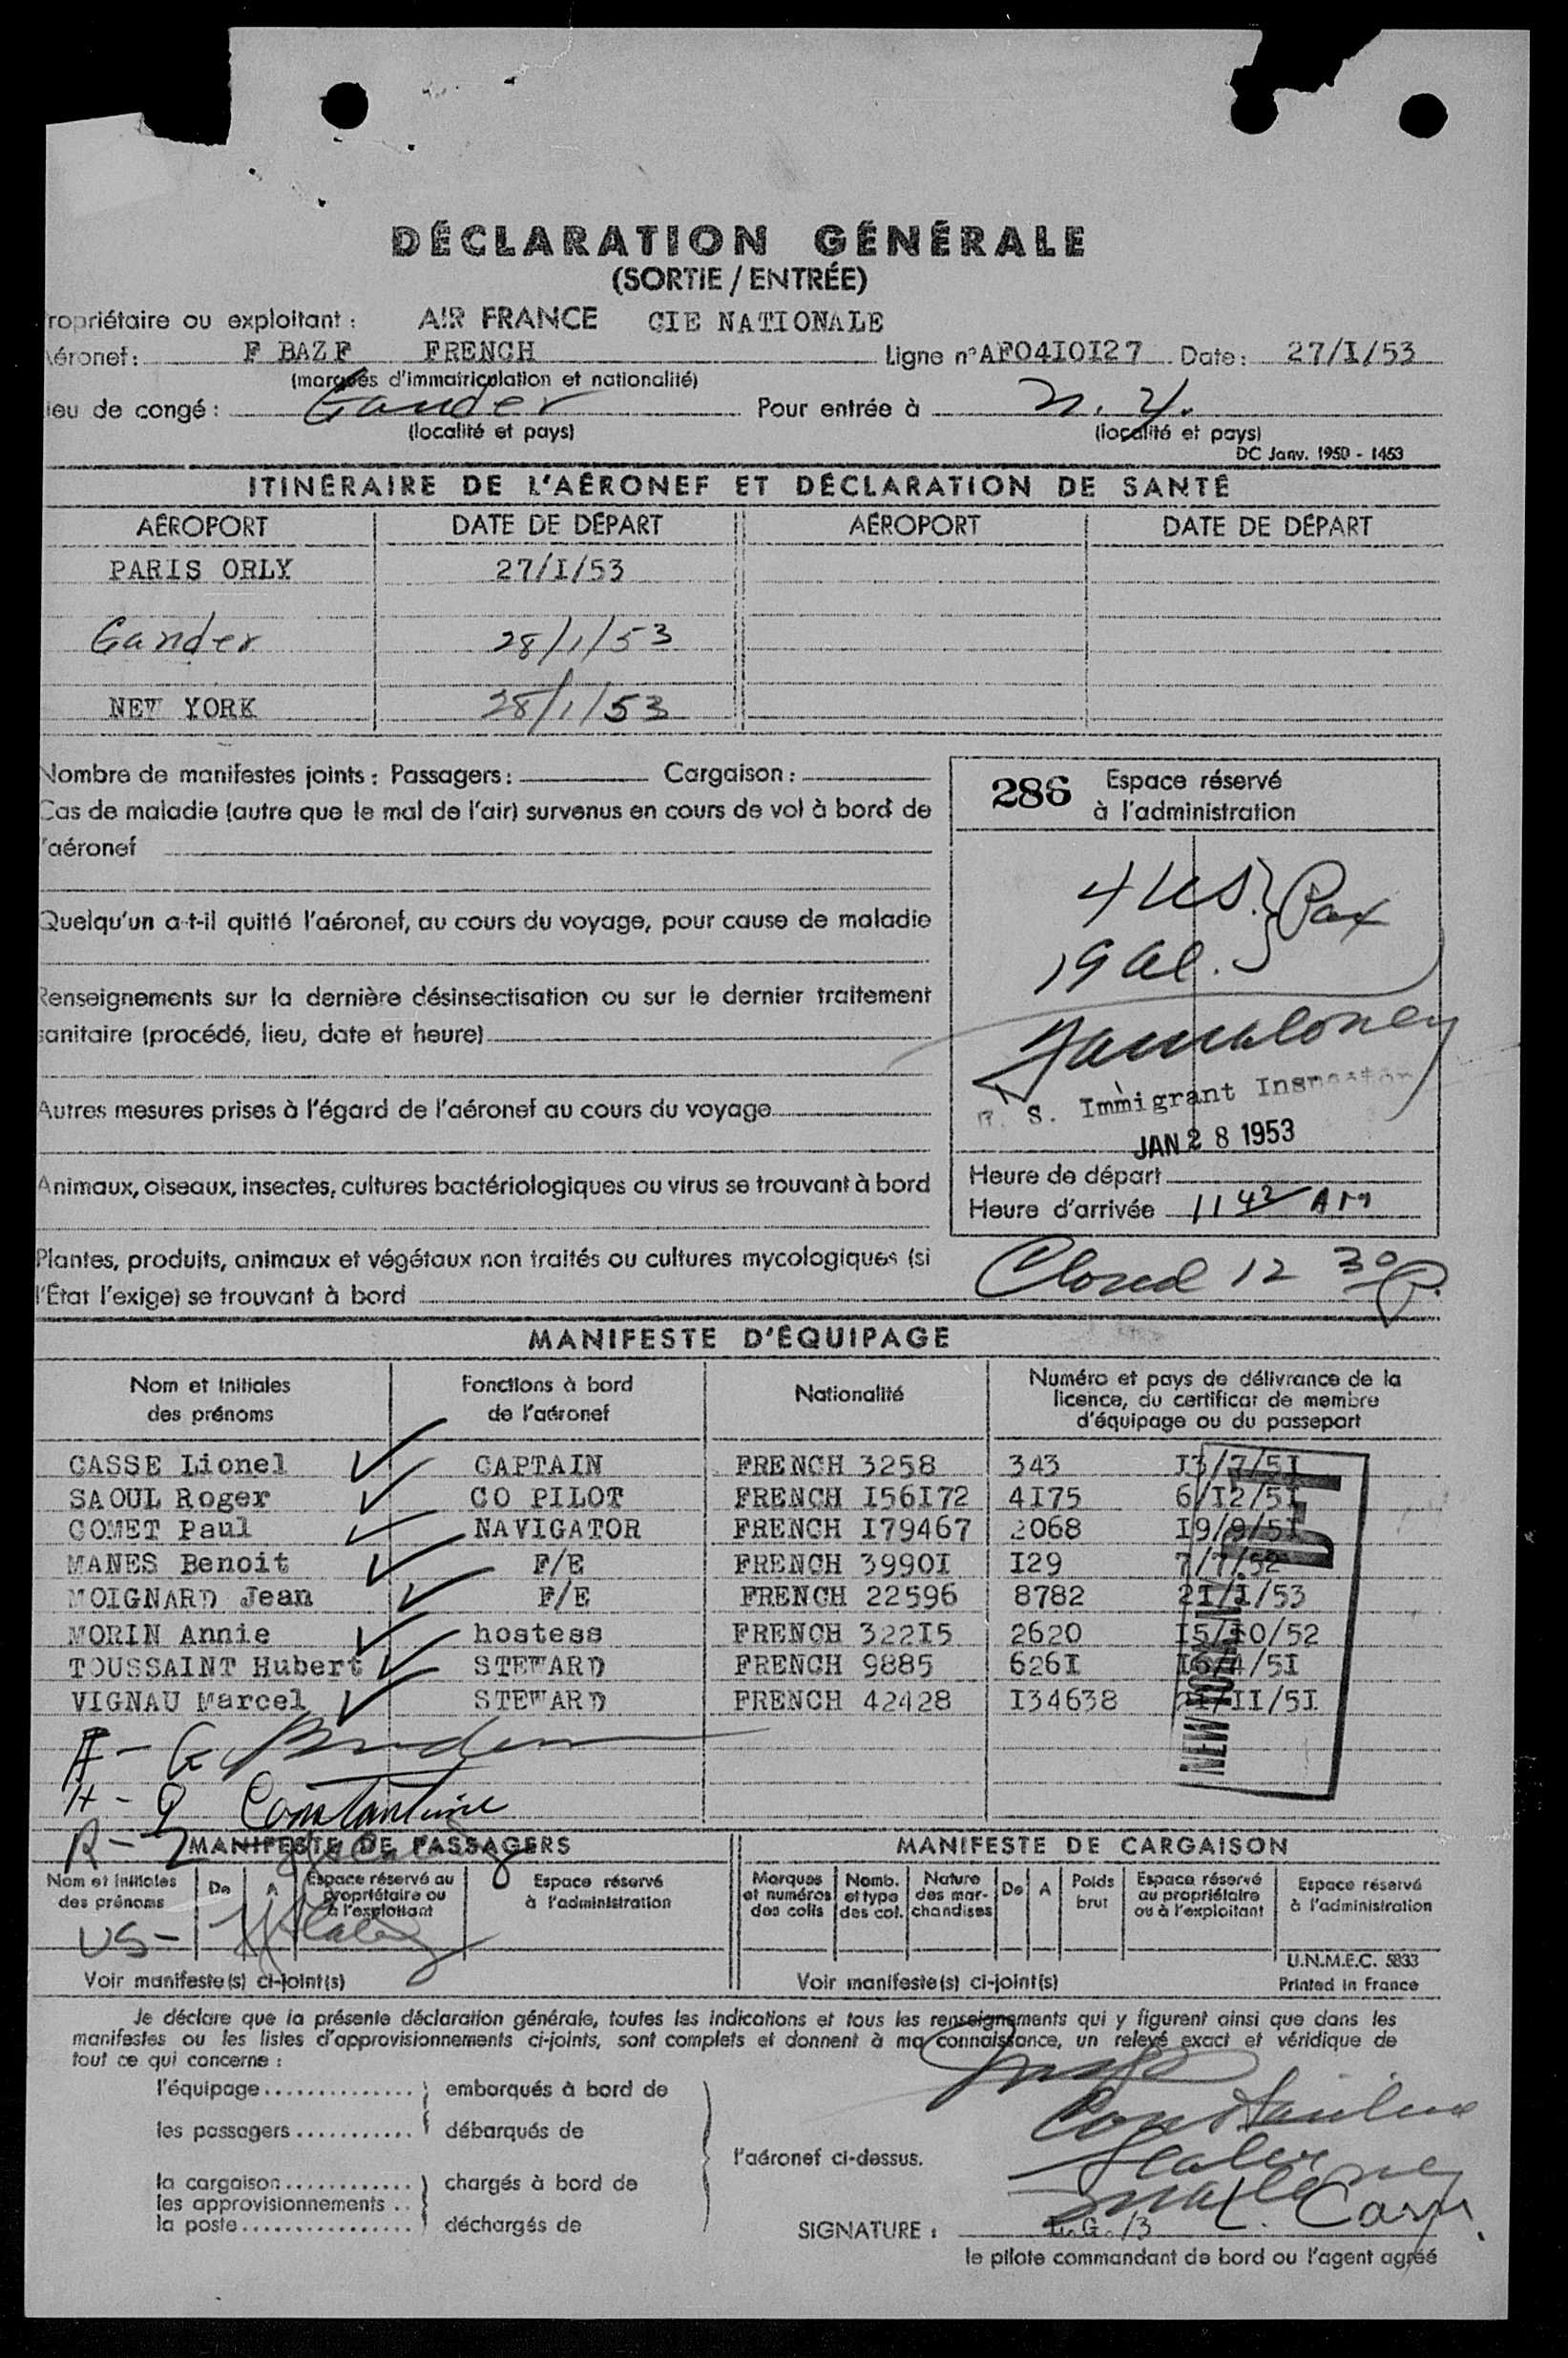 DÉCLARATION GÉNÉRALE
(SORTIE / ENTRÉE)
ropriétaire ou exploitant : AIR FRANCE CIE NATIONALE
éronef : F BAZF FRENCH Ligne n° AF04I0I27 Date : 27/I/53
(marques d'immatriculation et nationalité)
ieu de congé : Gander Pour entrée à N. Y.
(localité et pays) (localité et pays)
DC Janv. 1950 - 1453
ITINÉRAIRE DE L'AÉRONEF ET DÉCLARATION DE SANTÉ
AÉROPORT DATE DE DÉPART AÉROPORT DATE DE DÉPART
PARIS ORLY 27/I/53
Gander 28/1/53
NEW YORK 28/1/53
Nombre de manifestes joints : Passagers : Cargaison :
Cas de maladie (autre que le mal de l'air) survenus en cours de vol à bord de
l'aéronef
Quelqu'un a-t-il quitté l'aéronef, au cours du voyage, pour cause de maladie
Renseignements sur la dernière désinsectisation ou sur le dernier traitement
sanitaire (procédé, lieu, date et heure)
Autres mesures prises à l'égard de l'aéronef au cours du voyage
Animaux, oiseaux, insectes, cultures bactériologiques ou virus se trouvant à bord
Plantes, produits, animaux et végétaux non traités ou cultures mycologiques (si
l'État l'exige) se trouvant à bord
286 Espace réservé
à l'administration
4 US. } Pax
19 al.
U. S. Immigrant Inspector
JAN 28 1953
Heure de départ
Heure d'arrivée 11 42 AM
Closed 12 30 P.
MANIFESTE D'ÉQUIPAGE
Nom et initiales
des prénoms
Fonctions à bord
de l'aéronef
Nationalité
Numéro et pays de délivrance de la
licence, du certificat de membre
d'équipage ou du passeport
CASSE Lionel CAPTAIN FRENCH 3258 343 I3/7/5I
SAOUL Roger CO PILOT FRENCH I56I72 4I75 6/I2/5I
COMET Paul NAVIGATOR FRENCH I79467 2068 I9/9/5I
MANES Benoit F/E FRENCH 3990I I29 7/7/52
MOIGNARD Jean F/E FRENCH 22596 8782 2I/I/53
MORIN Annie hostess FRENCH 322I5 2620 I5/I0/52
TOUSSAINT Hubert STEWARD FRENCH 9885 626I I6/4/5I
VIGNAU Marcel STEWARD FRENCH 42428 I34638 /II/5I
NEW YORK
H - Q Constantine
MANIFESTE DE PASSAGERS
Nom et initiales
des prénoms
De
A
Espace réservé au
propriétaire ou
à l'exploitant
Espace réservé
à l'administration
US-
Voir manifeste(s) ci-joint(s)
MANIFESTE DE CARGAISON
Marques
et numéros
des colis
Nomb.
et type
des col.
Nature
des mar-
chandises
De
A
Poids
brut
Espace réservé
au propriétaire
ou à l'exploitant
Espace réservé
à l'administration
Voir manifeste(s) ci-joint(s)
U.N.M.E.C. 5833
Printed in France
Je déclare que la présente déclaration générale, toutes les indications et tous les renseignements qui y figurent ainsi que dans les
manifestes ou les listes d'approvisionnements ci-joints, sont complets et donnent à ma connaissance, un relevé exact et véridique de
tout ce qui concerne :
l'équipage.............. } embarqués à bord de
les passagers........... débarqués de
l'aéronef ci-dessus.
la cargaison............ } chargés à bord de
les approvisionnements ..
la poste................ déchargés de
Constantine
SIGNATURE : L. G. /3
le pilote commandant de bord ou l'agent agréé